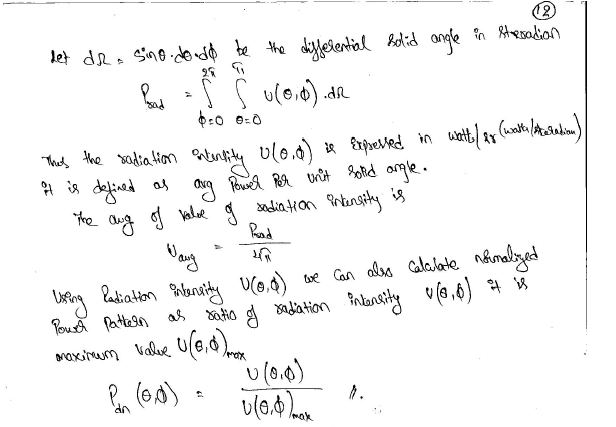 12
Let dΩ = sinθ.dθ.dϕ be the differential solid angle in steradian
Prad = ∫(ϕ=0 to 2π) ∫(θ=0 to π) U(θ,ϕ).dΩ
Thus the radiation intensity U(θ,ϕ) is Expressed in watts/sr (watts/steradian)
It is defined as avg Power Per unit solid angle.
The avg of value of radiation intensity is
Uavg = Prad / 4π
Using Radiation intensity U(θ,ϕ) we can also Calculate normalized
Power Pattern as ratio of radiation intensity U(θ,ϕ) it is
maximum value U(θ,ϕ)max
Pdn (θ,ϕ) = U(θ,ϕ) / U(θ,ϕ)max //.